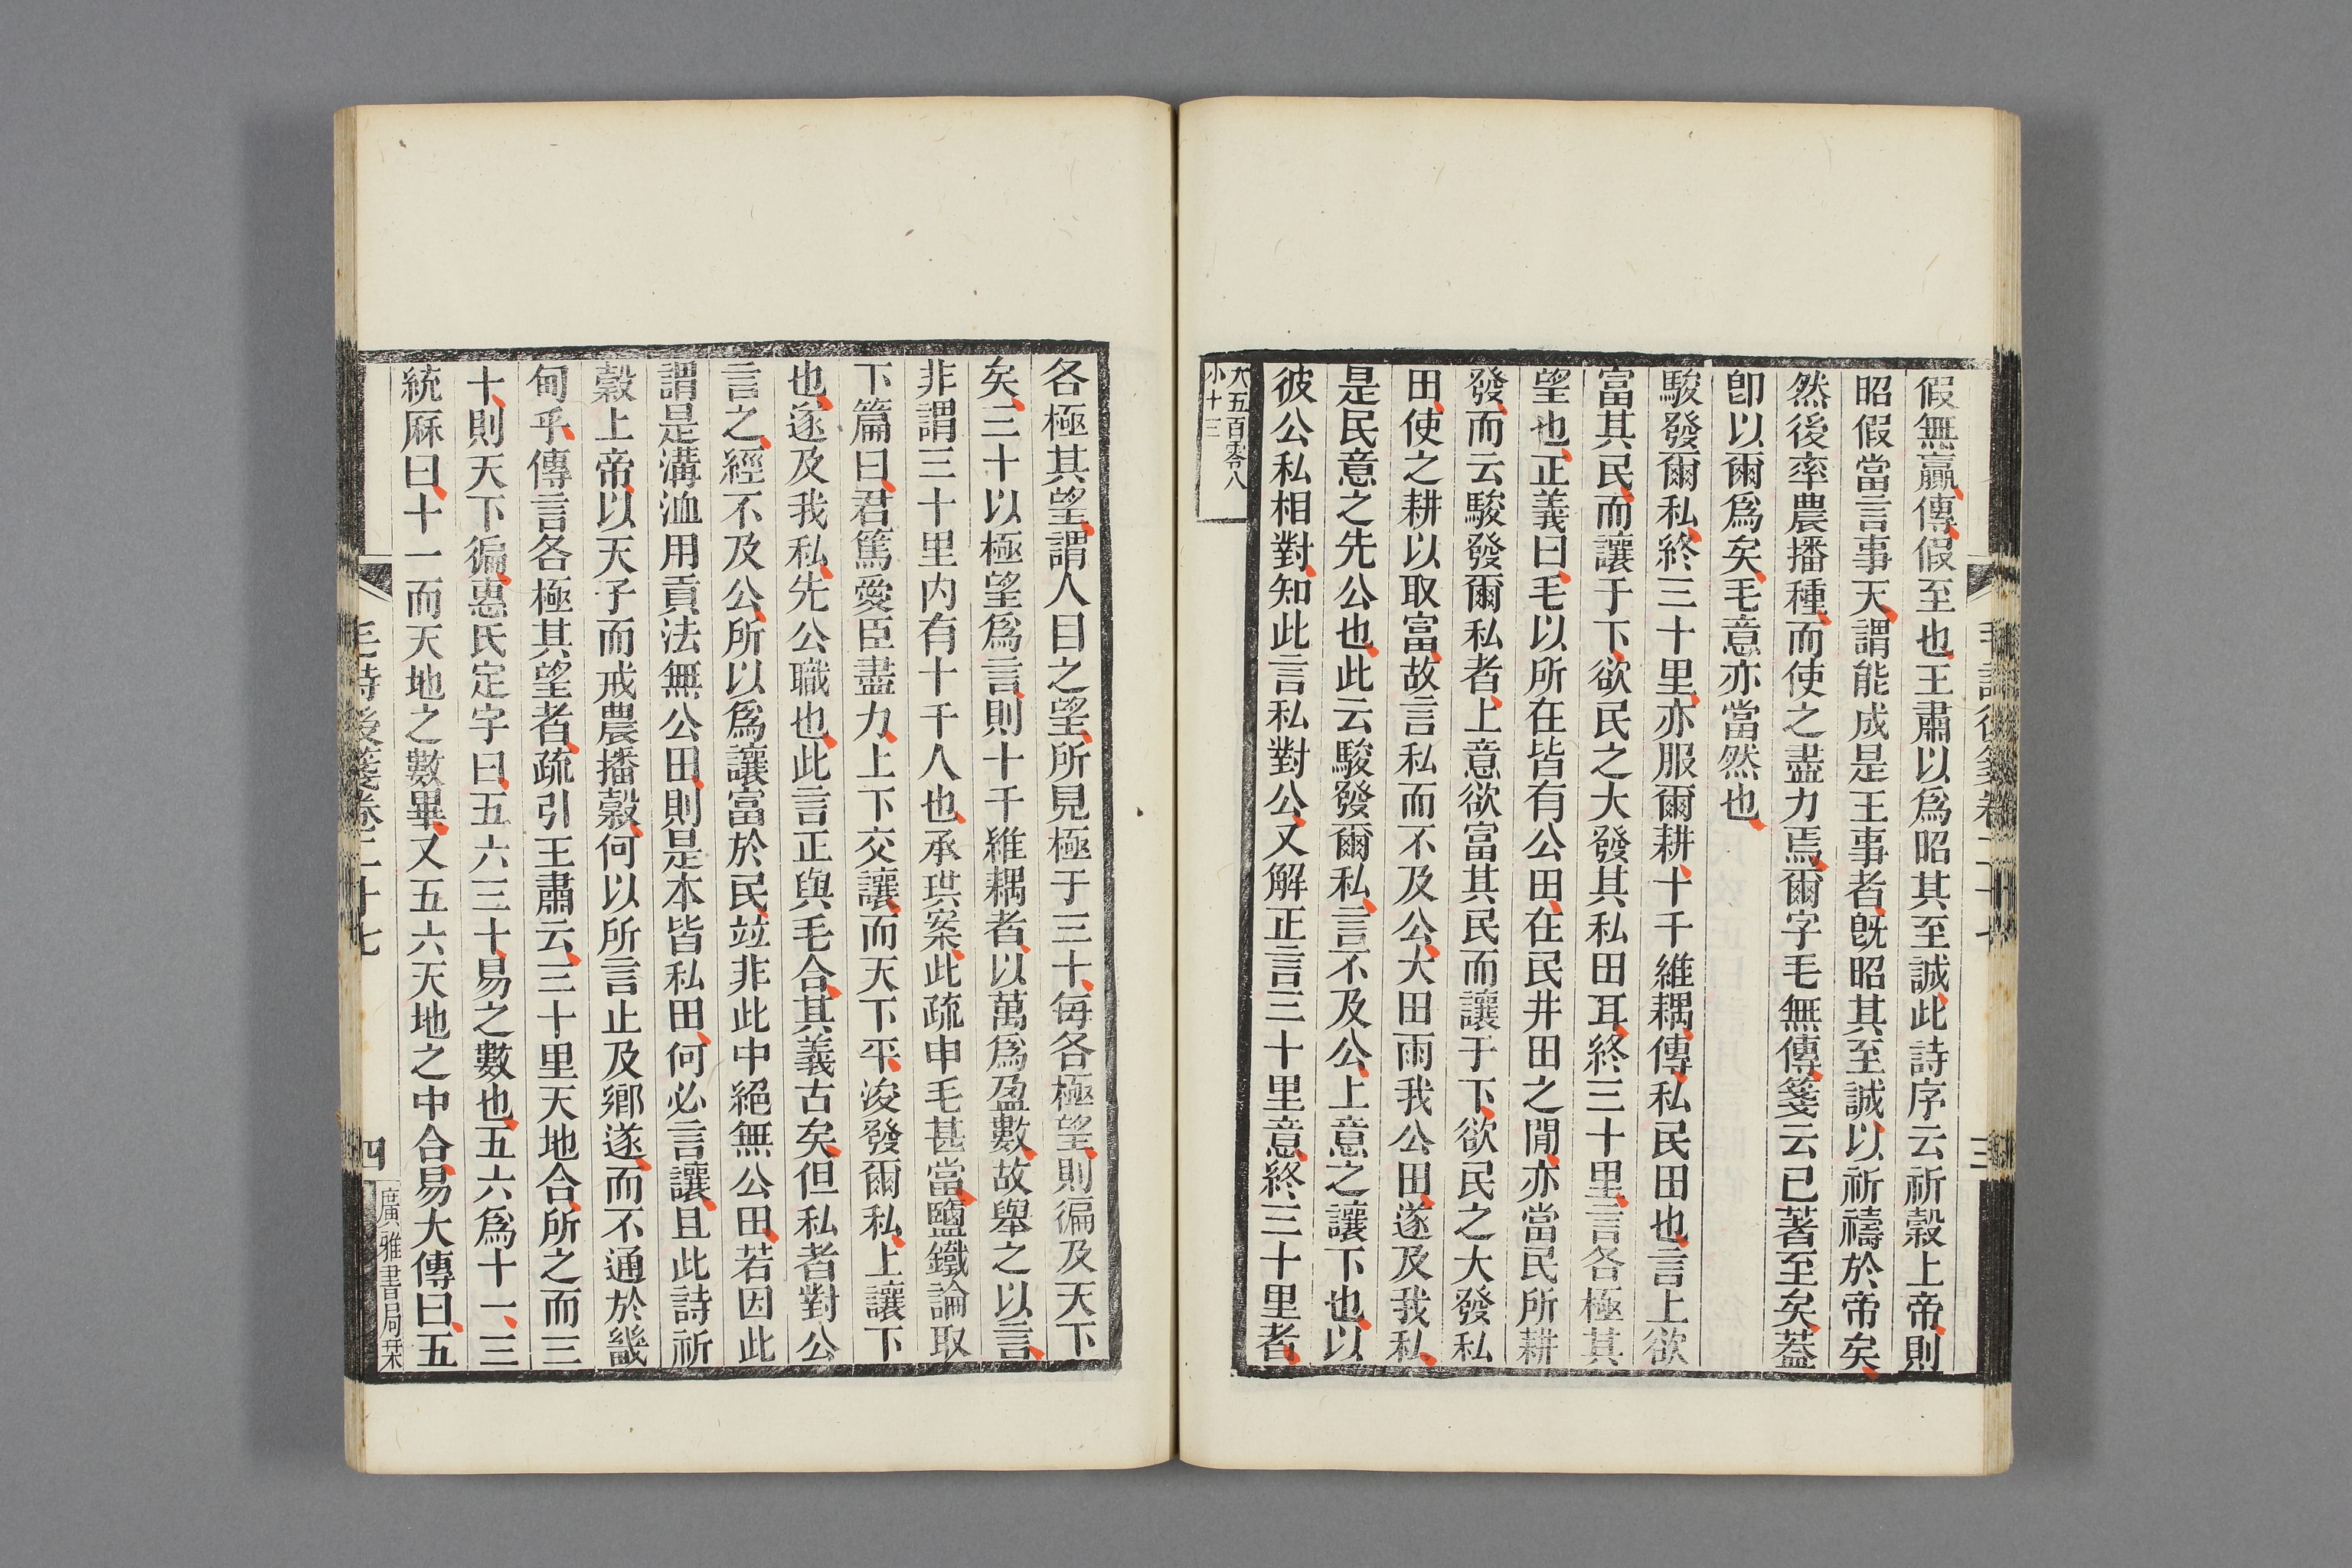 假無贏傳假至也王肅以爲昭其至誠此詩序云祈穀上帝則
昭假當言事天謂能成是王事者旣昭其至誠以祈禱於帝矣
然後率農播種而使之盡力焉爾字毛無傳箋云已著至矣葢
卽以爾爲矣毛意亦當然也
駿發爾私終三十里亦服爾耕十千維耦傳私民田也言上欲
富其民而讓于下欲民之大發其私田耳終三十里言各極其
望也正義曰毛以所在皆有公田在民井田之閒亦當民所耕
發而云駿發爾私者上意欲富其民而讓于下欲民之大發私
田使之耕以取富故言私而不及公大田雨我公田遂及我私
是民意之先公也此云駿發爾私言不及公上意之讓下也以
彼公私相對知此言私對公又解正言三十里意終三十里者
大五百零八
小十三
毛詩後箋卷二十七
三
各極其望謂人目之望所見極于三十每各極望則徧及天下
矣三十以極望爲言則十千維耦者以萬爲盈數故舉之以言
非謂三十里内有十千人也承珙案此疏申毛甚當鹽鐵論取
下篇曰君篤愛臣盡力上下交讓而天下平浚發爾私上讓下
也遂及我私先公職也此言正與毛合其義古矣但私者對公
言之經不及公所以爲讓富於民竝非此中絕無公田若因此
謂是溝洫用貢法無公田則是本皆私田何必言讓且此詩祈
穀上帝以天子而戒農播穀何以所言止及鄉遂而不通於畿
甸乎傳言各極其望者疏引王肅云三十里天地合所之而三
十則天下徧惠氏定宇曰五六三十易之數也五六爲十一三
統厤曰十一而天地之數畢又五六天地之中合易大傳曰五
毛詩後箋卷二十七
四
廣雅書局栞